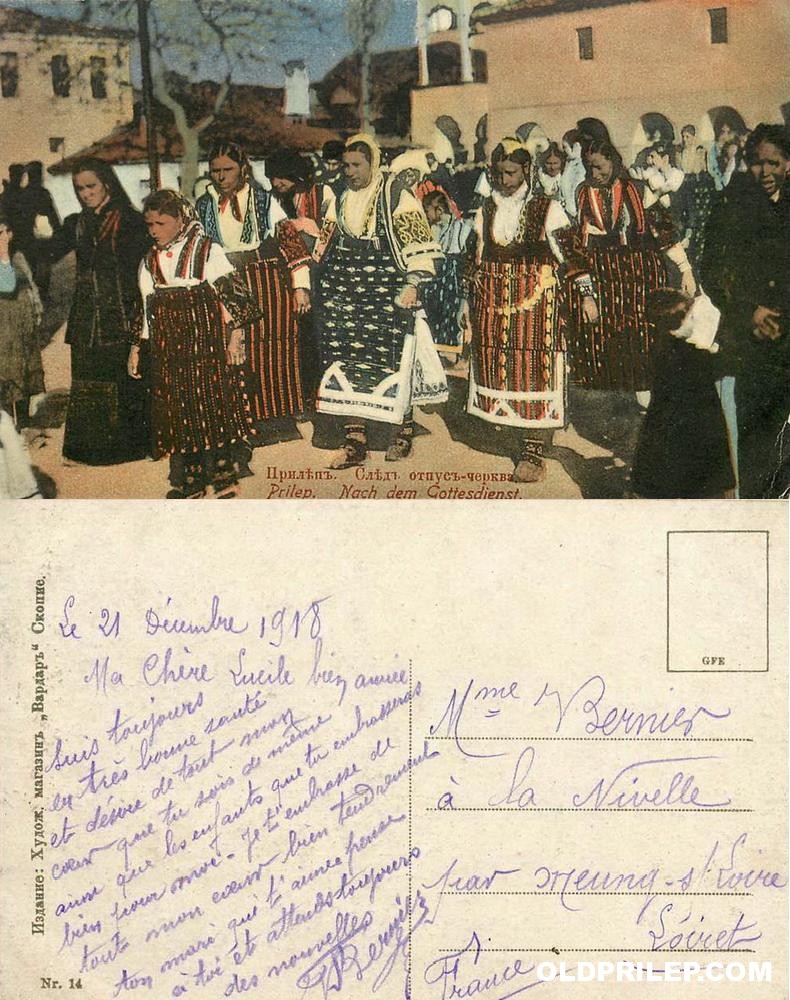 Прилѣпъ. Слѣдъ отпусъ-черква.
Prilep. Nach dem Gottesdienst.
Издание: Худож. магазинъ „Вардаръ“ Скопие.
Nr. 14
GFE
Le 21 Décembre 1918
Ma Chère Lucile bien aimée
suis toujours
en très bonne santé
et désire de tout mon
cœur que tu sois de même
ainsi que les enfants que tu embrasseras
bien pour moi. Je t'embrasse de
tout mon cœur bien tendrement
ton mari qui t'aime pense
à toi et attends toujours
des nouvelles
Bernier
Mme Bernier
à la Nivelle
par Meung-s/Loire
Loiret
France
OLDPRILEP.COM